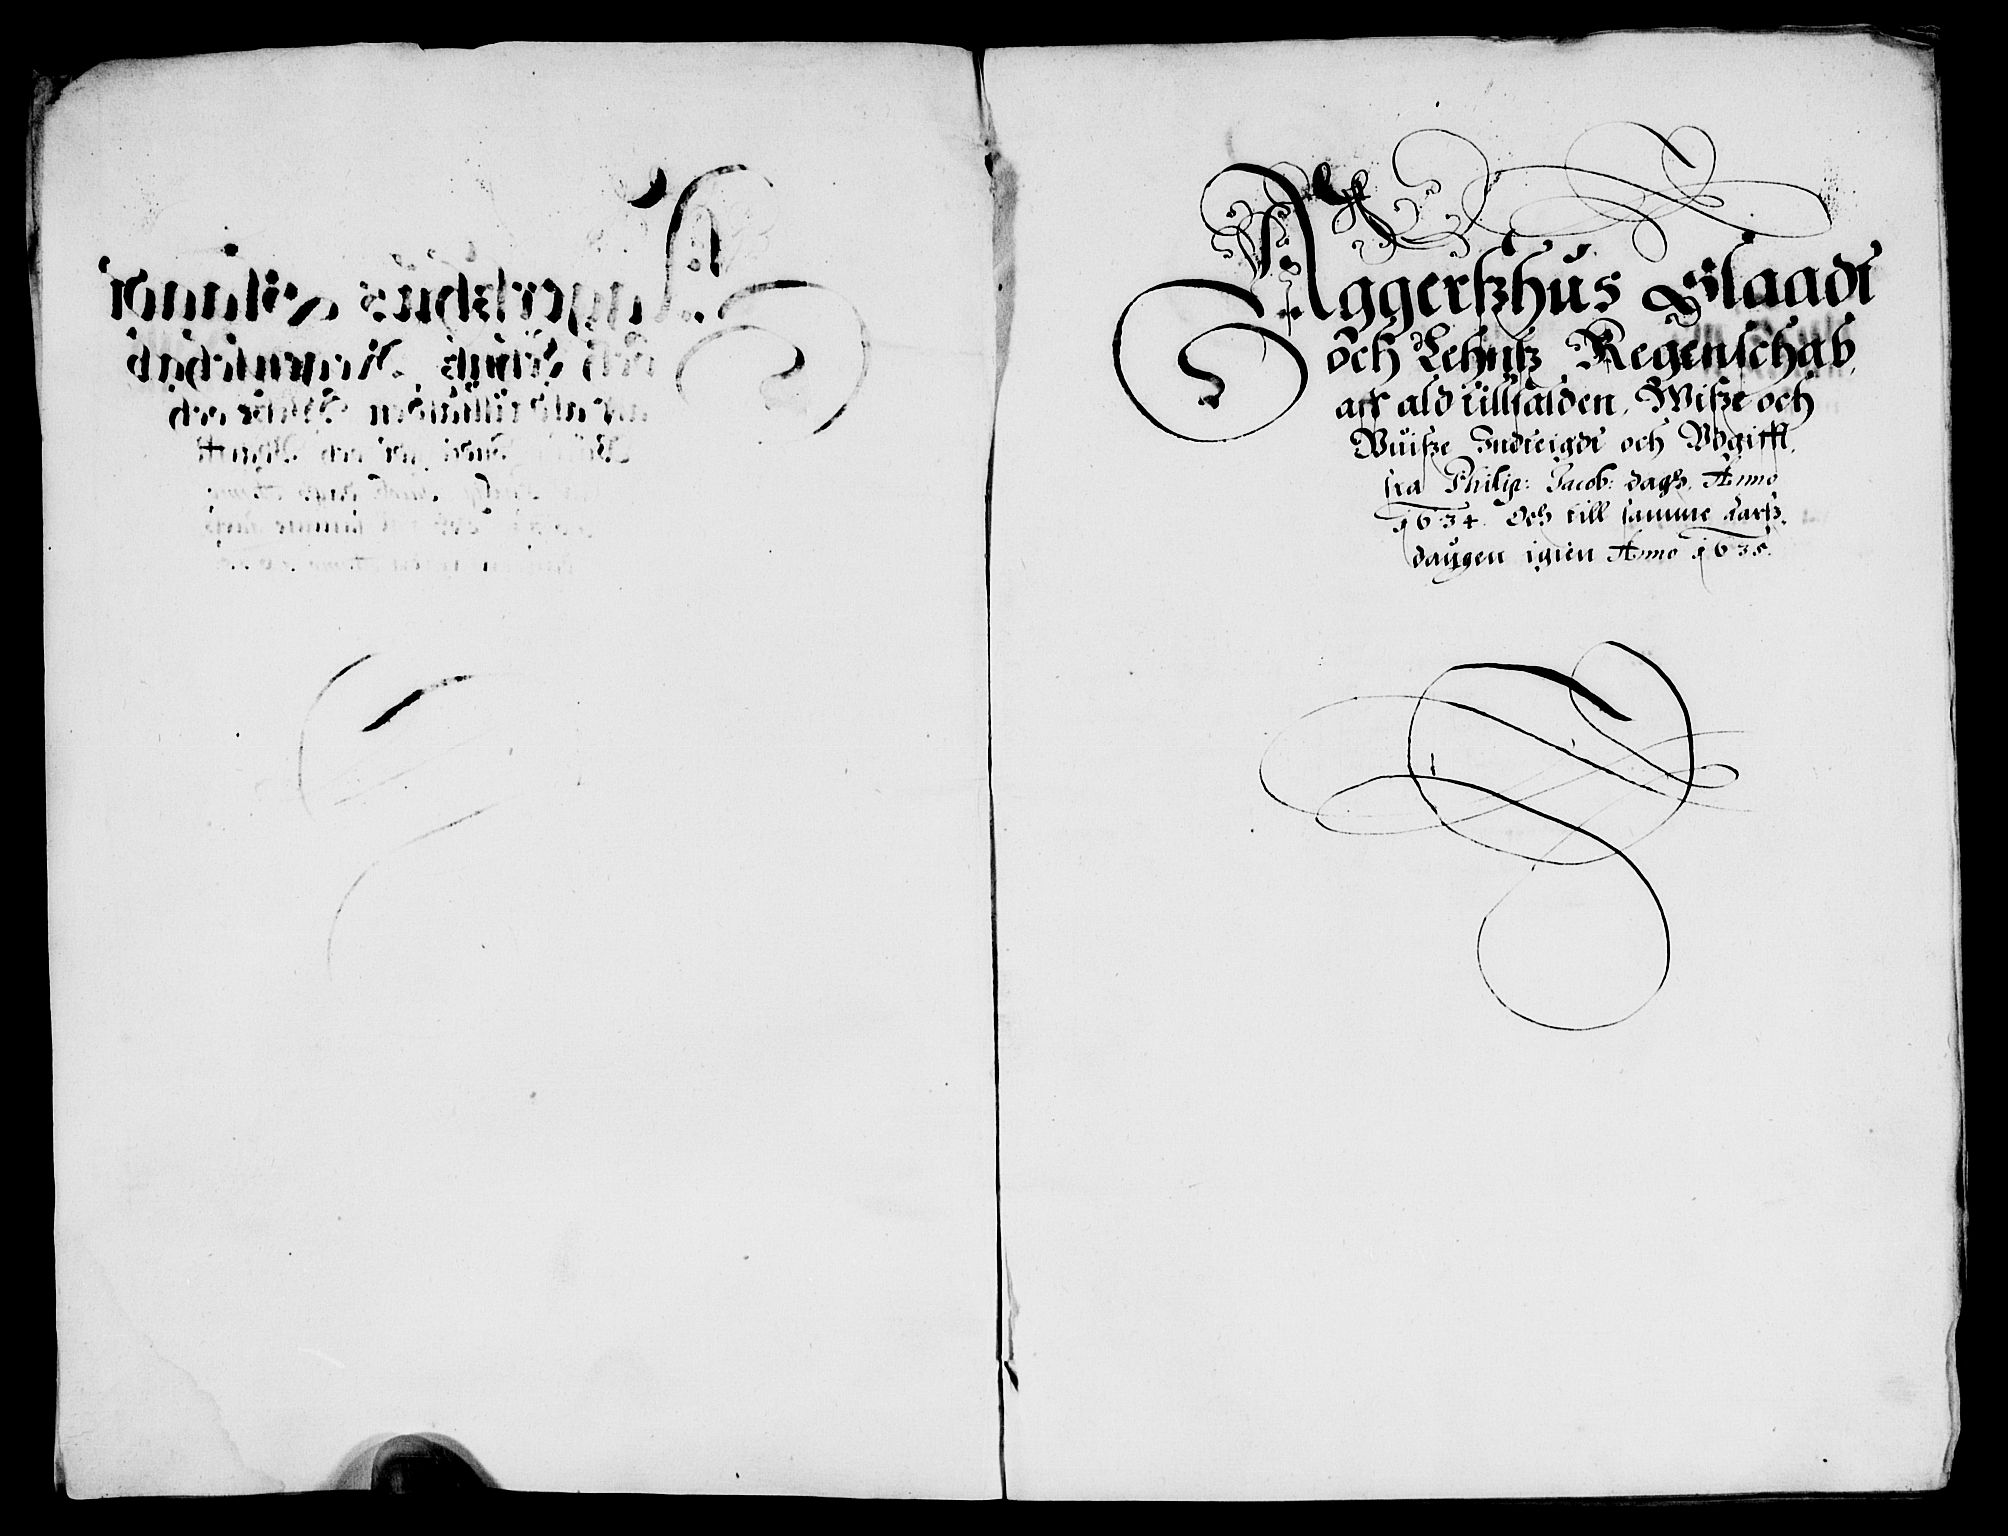 Aggerßhus Slaadt
och Lehnß Regenschab,
aff ald tillfalden, Wiße och
Wuiße Indteigdt och Vdgifft,
fra Philip: Jacob: dagh Anno
1634. Och till samme aarß
daugen igien Anno 1635.